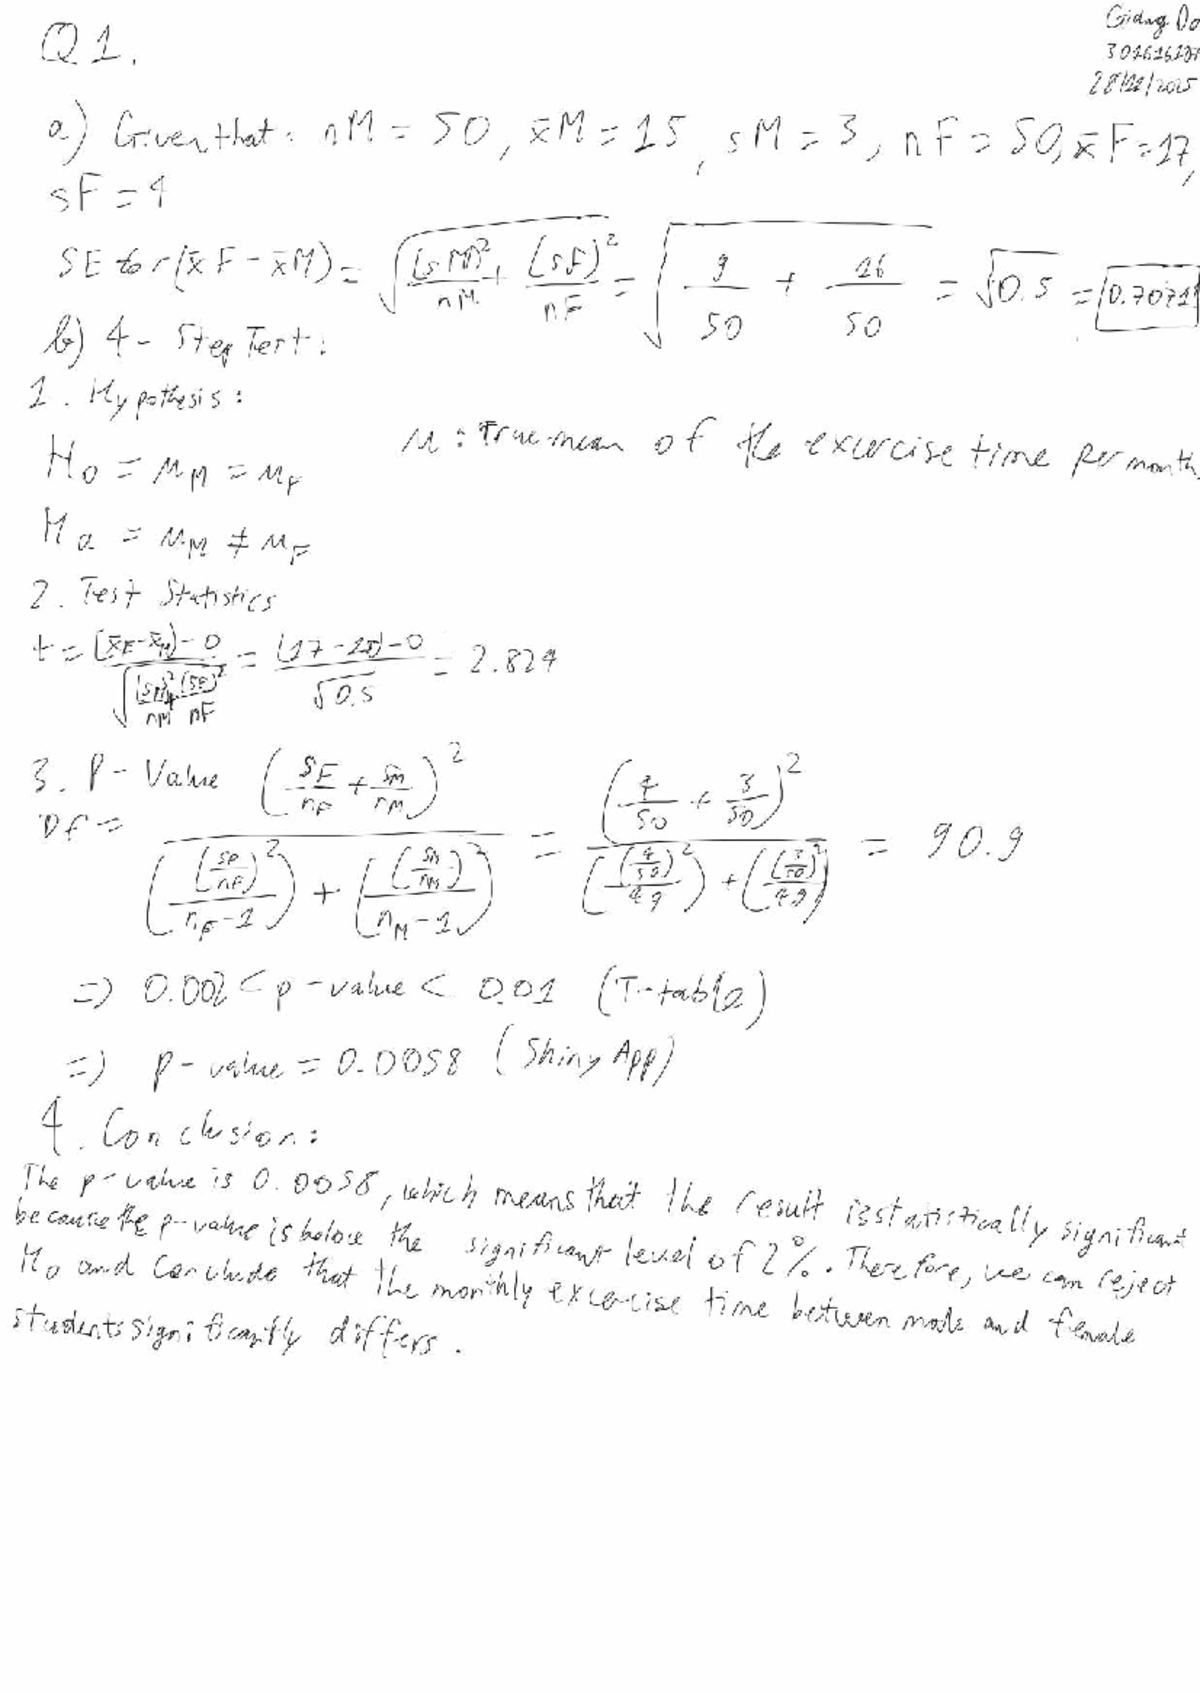 Q1.
Giang Do
28/11/2025
a) Given that: nM = 50, x̄M = 15, sM = 3, nF = 50, x̄F = 17,
sF = 4
SE for (x̄F - x̄M) = √((sM)²/nM + (sF)²/nF) = √(9/50 + 16/50) = √0.5 = 0.7071
b) 4 - Step Test:
1. Hypothesis:
H₀ = μ_M = μ_F
μ: True mean of the excercise time per month
H_a = μ_M ≠ μ_F
2. Test Statistics
t = ((x̄F - x̄M) - 0)/√((sM)²/nM + (sF)²/nF) = ((17 - 15) - 0)/√0.5 = 2.824
3. P - Value
Df = (sF/nF + sM/nM)² / (((sF/nF)²/(nF - 1)) + ((sM/nM)²/(nM - 1))) = (4/50 + 3/50)² / (((4/50)²/49) + ((3/50)²/49)) = 90.9
=> 0.002 < p - value < 0.01 (T-table)
=> p - value = 0.0058 (Shiny App)
4. Conclusion:
The p-value is 0.0058, which means that the result is statistically significant
because the p-value is below the significant level of 2%. Therefore, we can reject
H₀ and conclude that the monthly excercise time between male and female
students significantly differs.